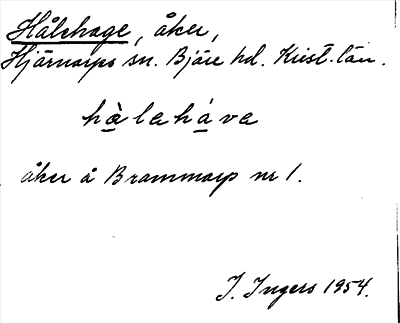 Hålehage, åker,
Hjärnarps sn. Bjäre hd. Krist. län.
hàlaháva
åker å Brammarp nr 1.
I. Ingers 1954.